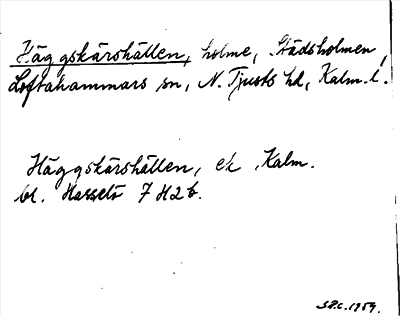 Häggskärshällen, holme, Städsholmen,
Loftahammars sn, N. Tjusts hd, Kalm. l.
Häggskärshällen, ek. Kalm.
bl. Hasselö 7 H2b.
S.P.C. 1959.